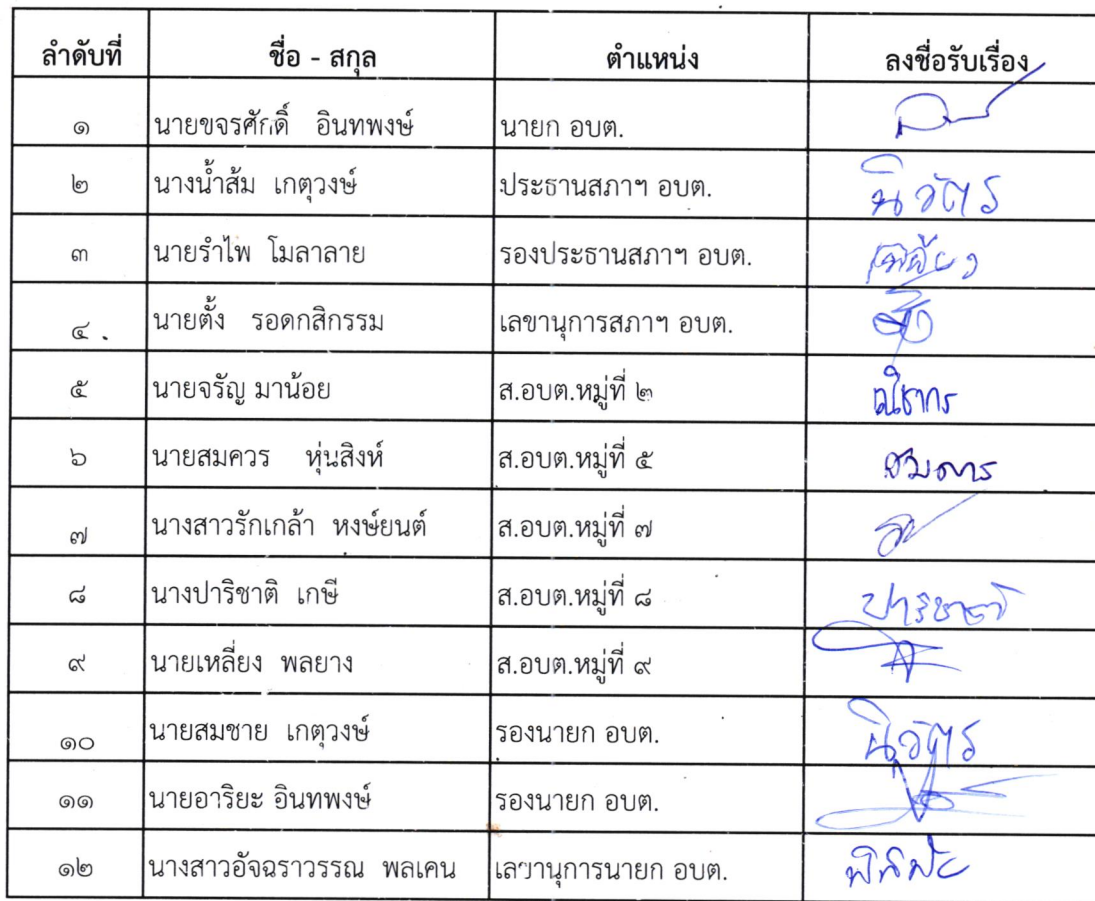 ลำดับที่ ชื่อ - สกุล ตำแหน่ง ลงชื่อรับเรื่อง
๑ นายขจรศักดิ์ อินทพงษ์ นายก อบต.
๒ นางน้ำส้ม เกตุวงษ์ ประธานสภาฯ อบต. นิวัตร
๓ นายรำไพ โมลาลาย รองประธานสภาฯ อบต.
๔ นายตั้ง รอดกสิกรรม เลขานุการสภาฯ อบต.
๕ นายจรัญ มาน้อย ส.อบต.หมู่ที่ ๒
๖ นายสมควร หุ่นสิงห์ ส.อบต.หมู่ที่ ๕
๗ นางสาวรักเกล้า หงษ์ยนต์ ส.อบต.หมู่ที่ ๗
๘ นางปาริชาติ เกษี ส.อบต.หมู่ที่ ๘ ปาริชาติ
๙ นายเหลี่ยง พลยาง ส.อบต.หมู่ที่ ๙
๑๐ นายสมชาย เกตุวงษ์ รองนายก อบต. นิวัตร
๑๑ นายอาริยะ อินทพงษ์ รองนายก อบต.
๑๒ นางสาวอัจฉราวรรณ พลเคน เลขานุการนายก อบต.